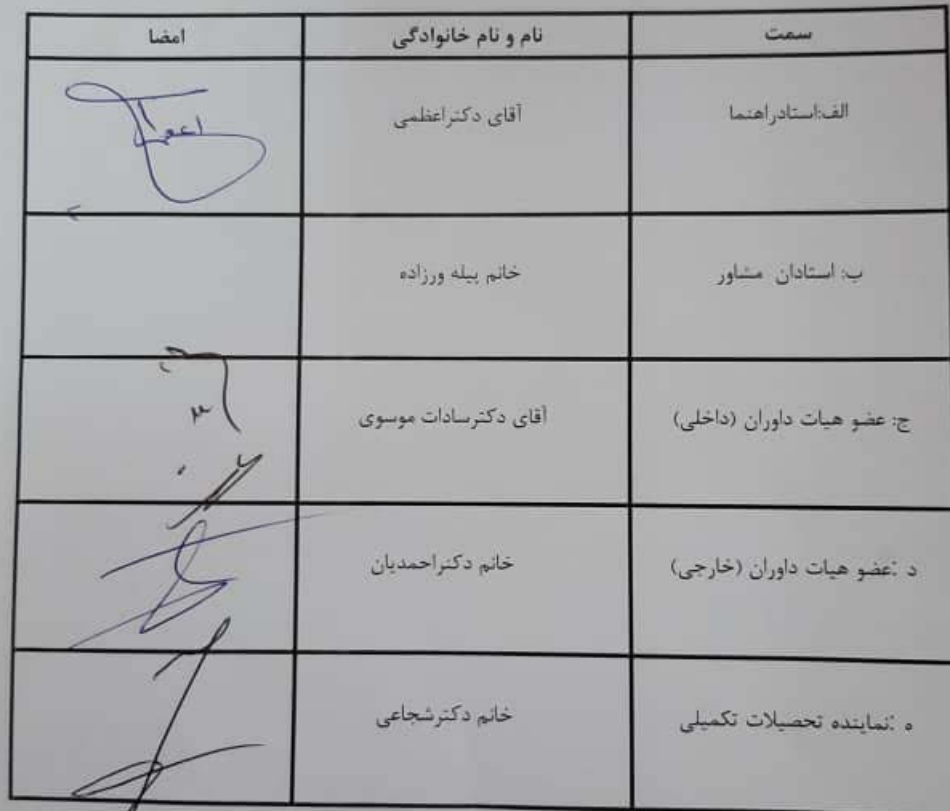 سمت نام و نام خانوادگی امضا
الف:استادراهنما آقای دکتراعظمی
ب: استادان مشاور خانم پیله ورزاده
ج: عضو هیات داوران (داخلی) آقای دکترسادات موسوی
د :عضو هیات داوران (خارجی) خانم دکتراحمدیان
ه :نماینده تحصیلات تکمیلی خانم دکترشجاعی